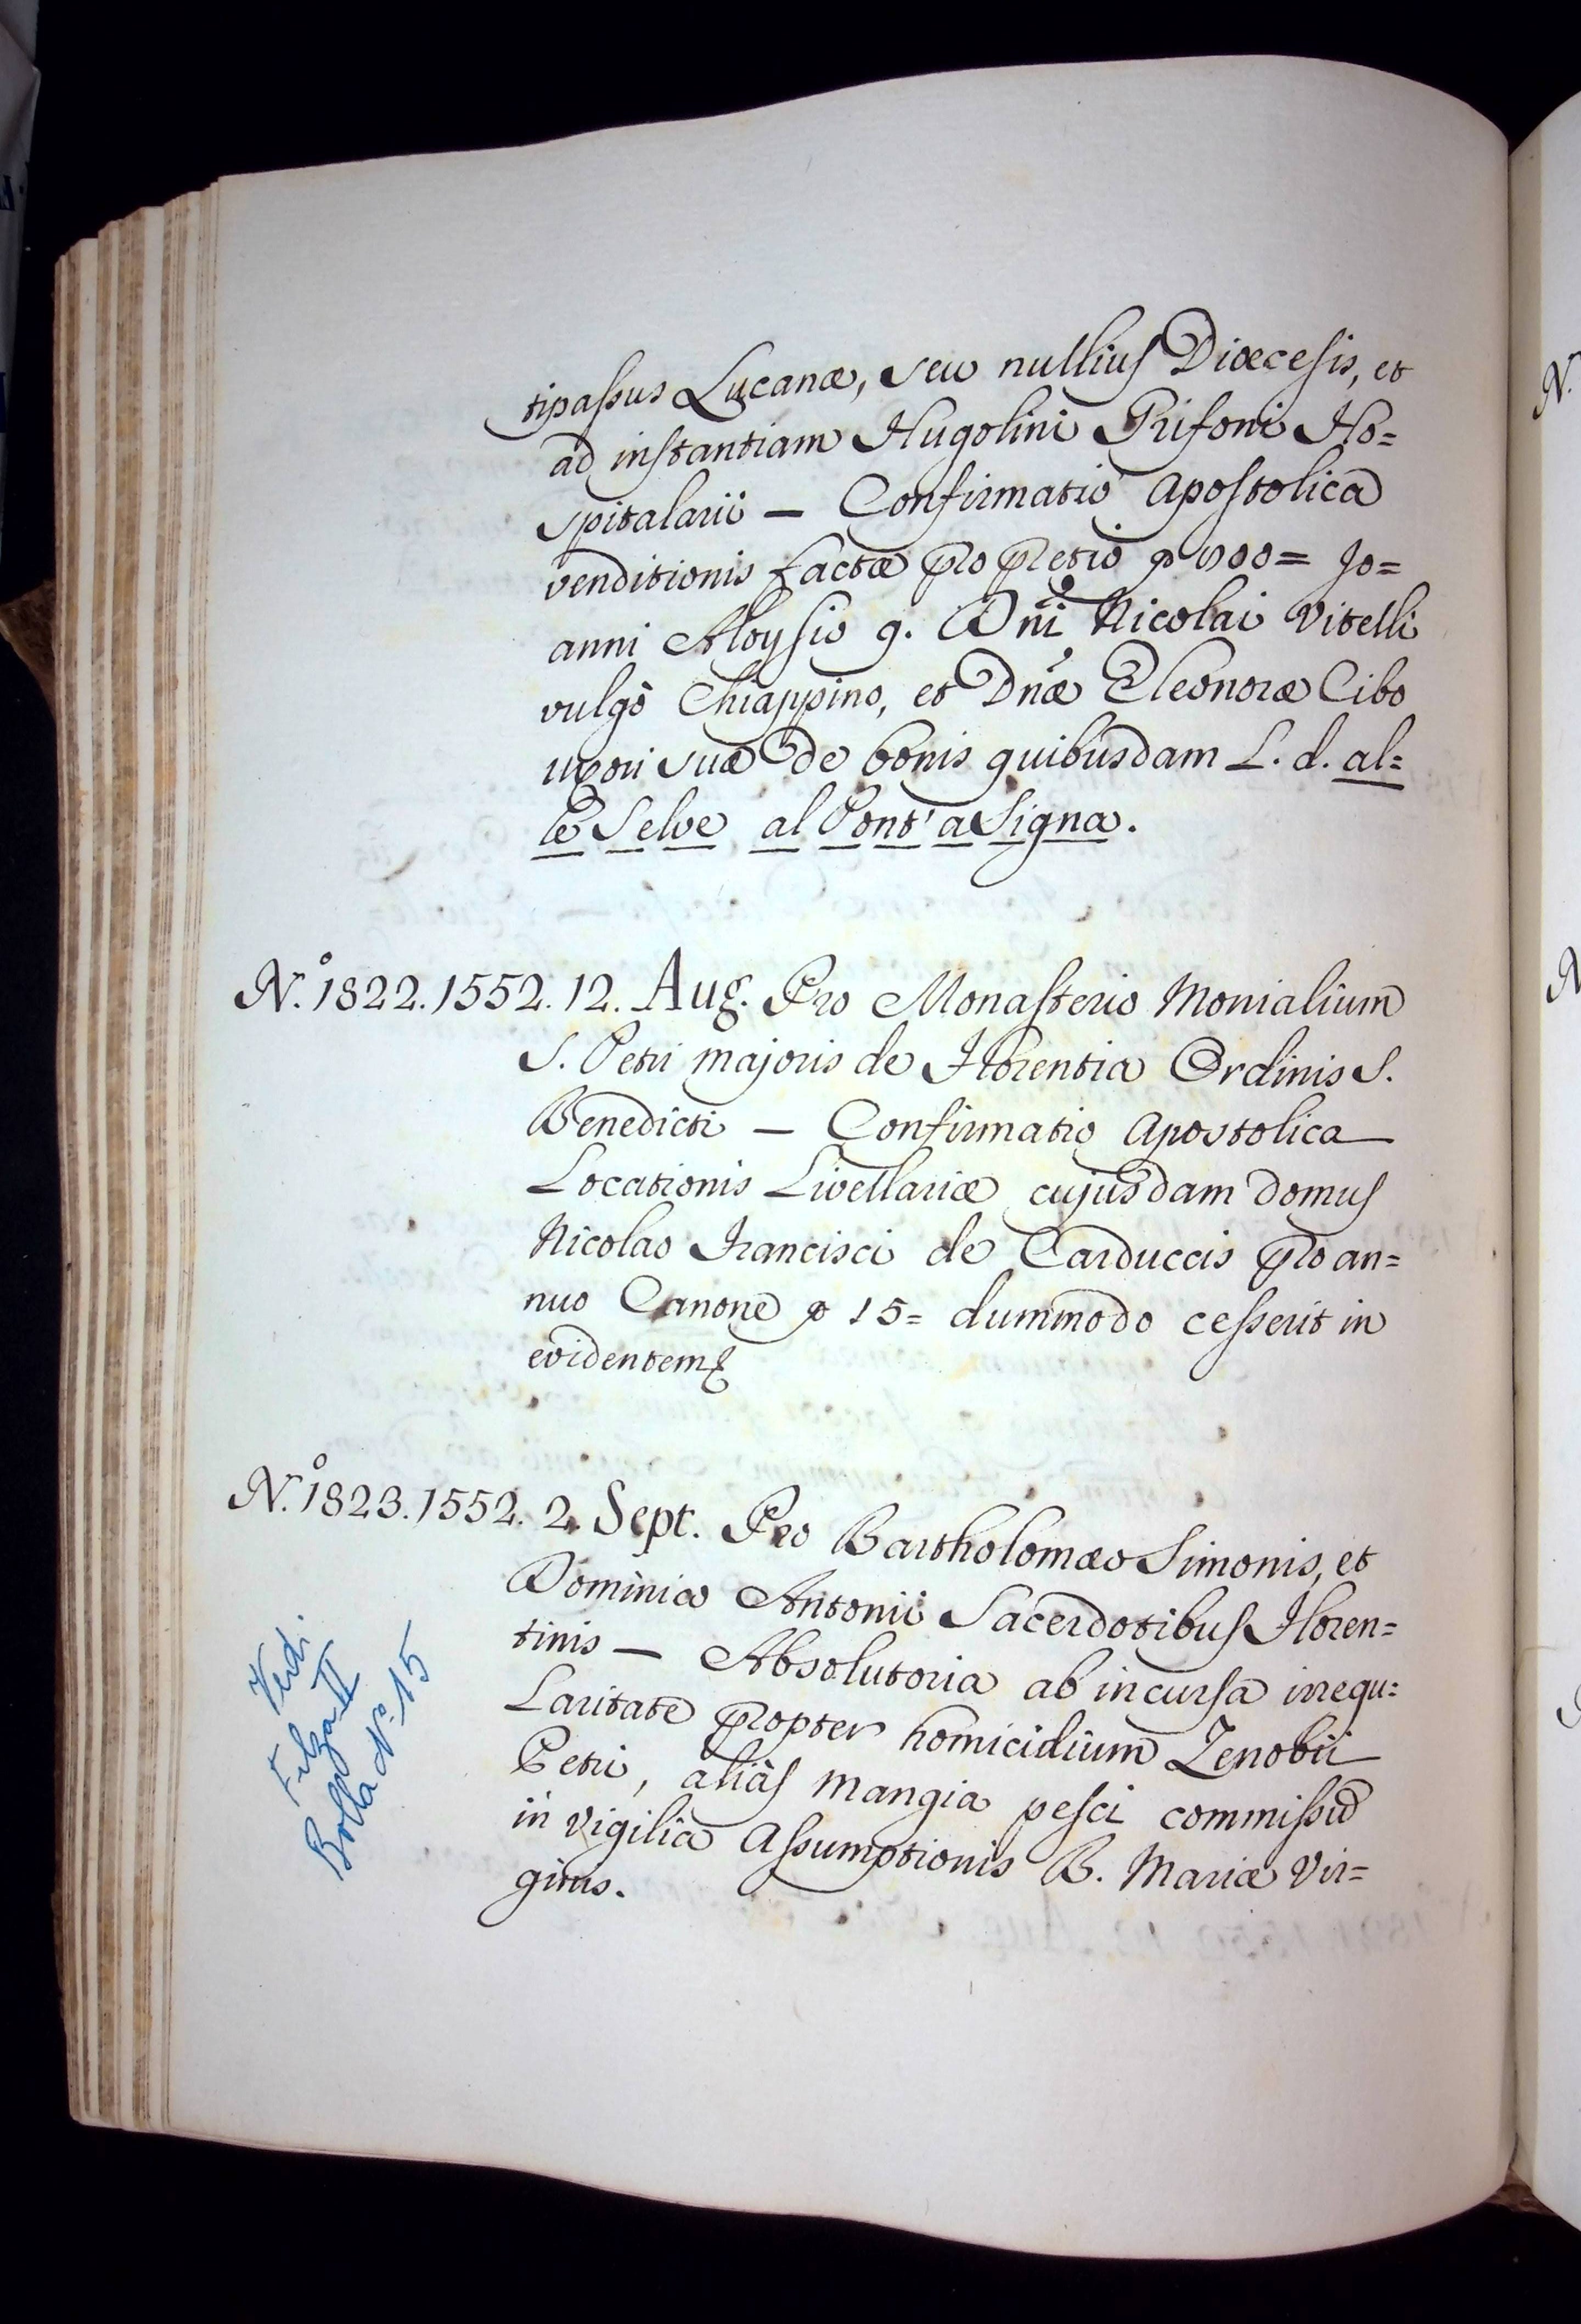 tipassus Lucanæ, seu nullius Diœcesis, et
ad instantiam Hugolini Grifoni Ho=
spitalarii — Confirmatio Apostolica
venditionis factæ pro pretio Jo=
anni Aloysio q. Dni Nicolai Vitelli
vulgò Chiappino, et Dnæ Eleonoræ Cibo
uxori suæ de bonis quibusdam L. d. al=
le Selve al Pont' a Signa.
N.º 1822. 1552. 12. Aug. Pro Monasterio Monialium
S. Petri majoris de Florentia Ordinis S.
Benedicti — Confirmatio Apostolica
Locationis Livellariæ cujusdam domus
Nicolao Francisci de Carduccis pro an=
nuo Canone 15= dummodo cesserit in
evidentem
N.º 1823. 1552. 2. Sept. Pro Bartholomæo Simonis, et
Dominico Antonii Sacerdotibus Floren=
tinis — Absolutoria ab incursa irregu=
laritate propter homicidium Zenobii
Petri, aliàs Mangia pesci commissũ
in vigilia Assumptionis B. Mariæ Vir=
ginis.
Vedi
Filza II
Bolla Nº 15